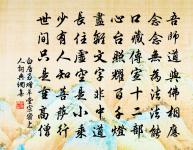 吾師道與佛相應
念念無為法法能
口藏傳宣十二部
心台照耀百千燈
盡離文字非中道
長住虛空是小乘
少有人知菩薩行
世間只是重高僧
白居易贈草堂宗密上
人詞典網集